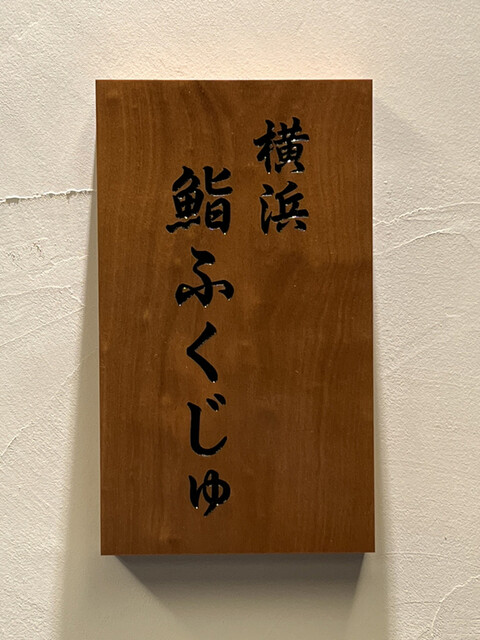 横浜
鮨ふくじゅ